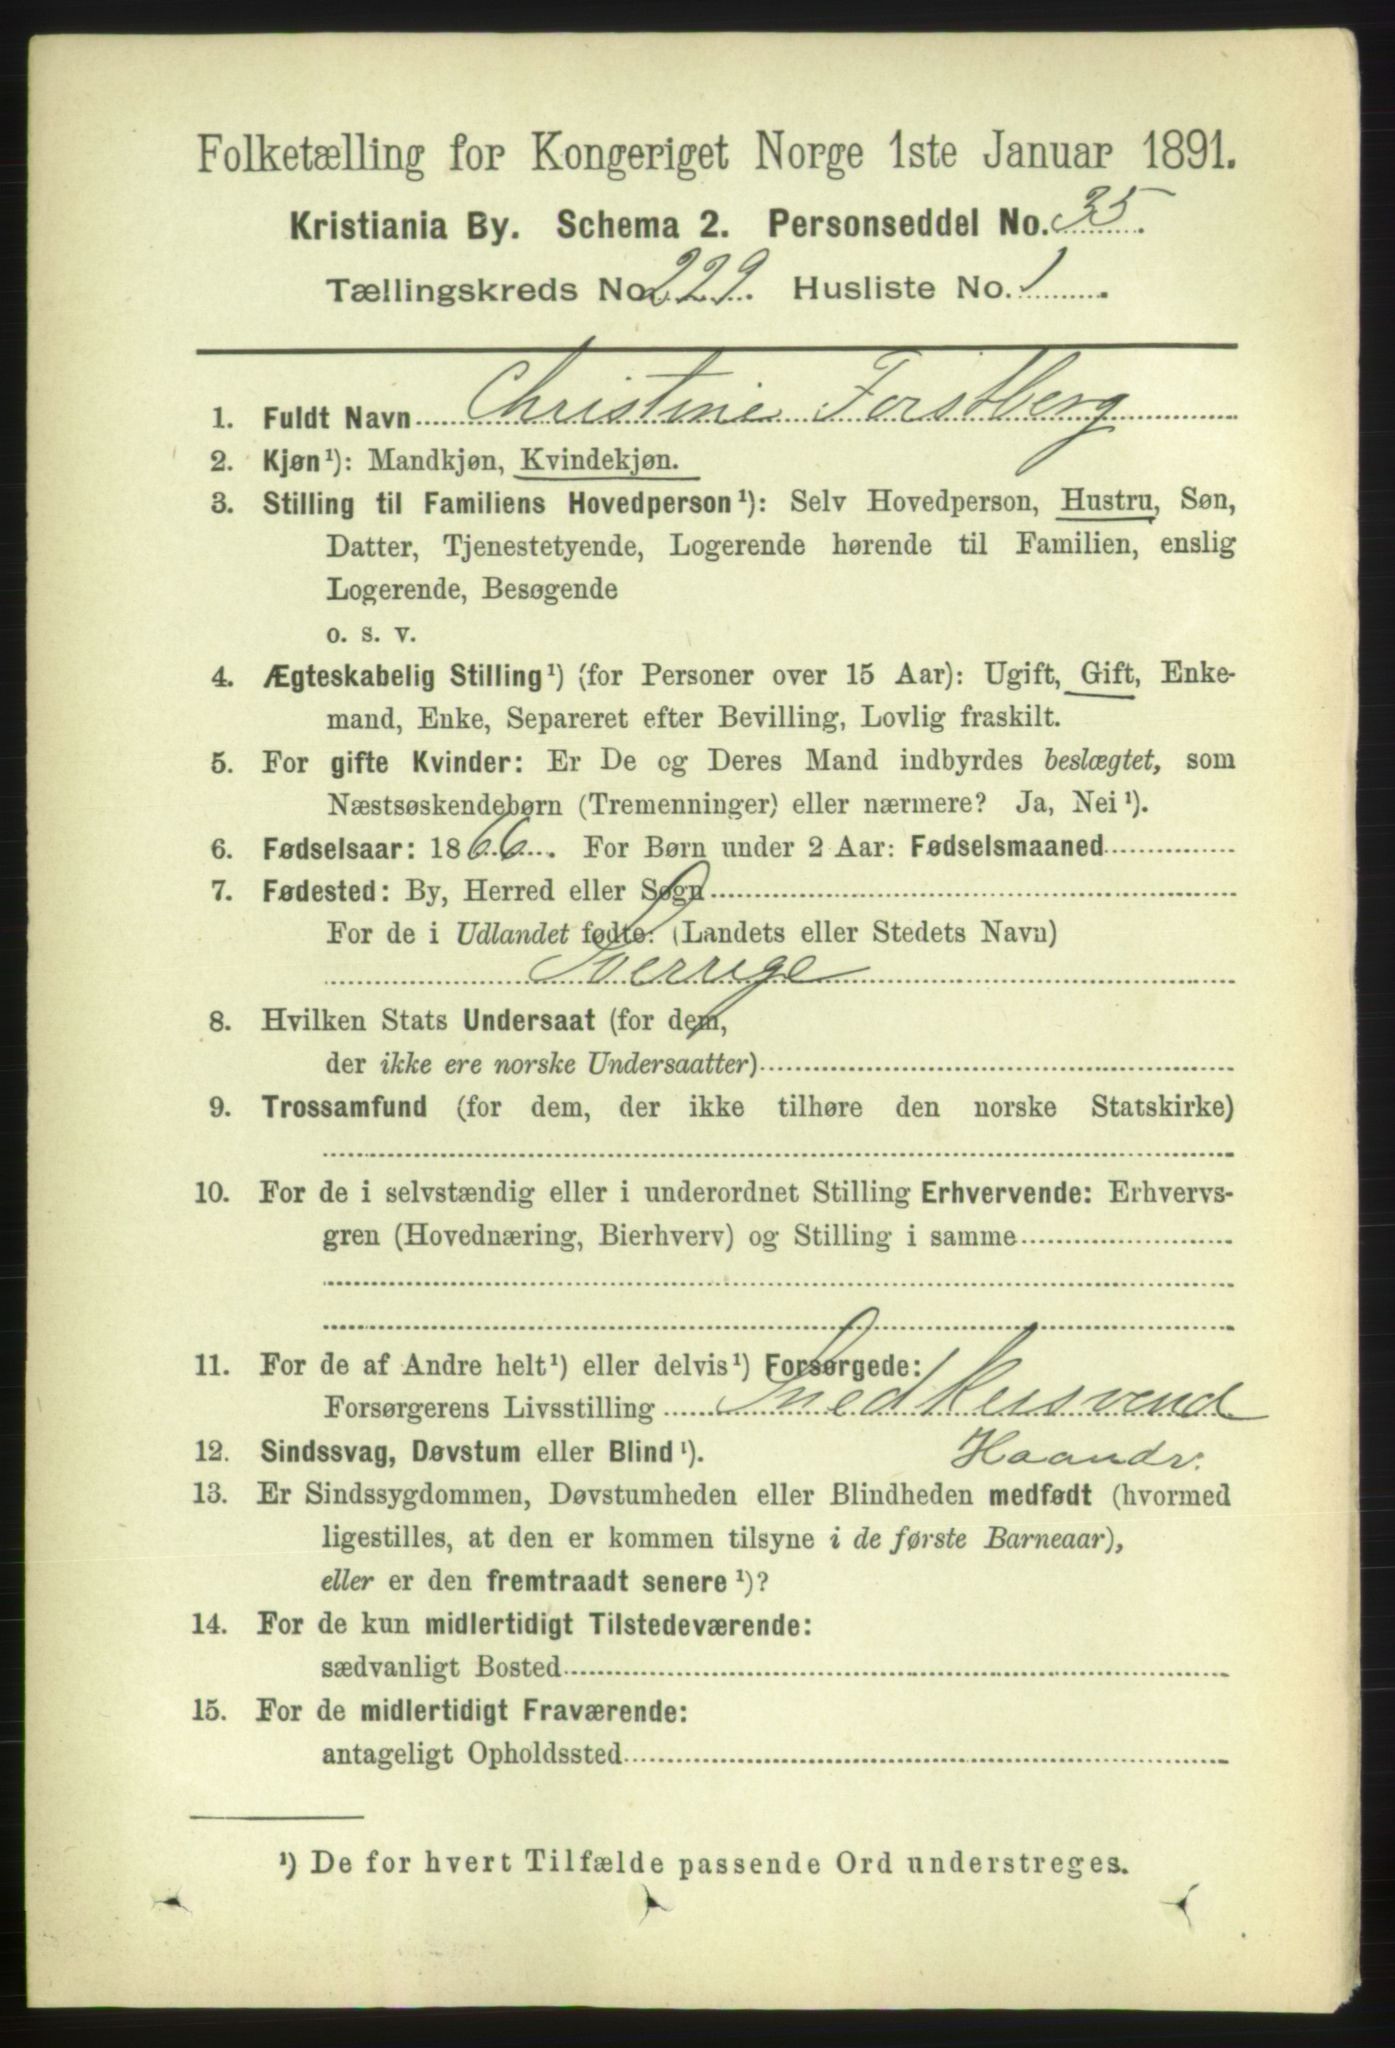 Folketælling for Kongeriget Norge 1ste Januar 1891.
Kristiania By. Schema 2. Personseddel No. 35.
Tællingskreds No. 229. Husliste No. 1.
1. Fuldt Navn Christine Forstberg
2. Kjøn¹): Mandkjøn, Kvindekjøn.
3. Stilling til Familiens Hovedperson¹): Selv Hovedperson, Hustru, Søn,
Datter, Tjenestetyende, Logerende hørende til Familien, enslig
Logerende, Besøgende
o. s. v.
4. Ægteskabelig Stilling¹) (for Personer over 15 Aar): Ugift, Gift, Enke-
mand, Enke, Separeret efter Bevilling, Lovlig fraskilt.
5. For gifte Kvinder: Er De og Deres Mand indbyrdes beslægtet, som
Næstsøskendebørn (Tremenninger) eller nærmere? Ja, Nei¹).
6. Fødselsaar: 1866. For Børn under 2 Aar: Fødselsmaaned
7. Fødested: By, Herred eller Sogn
For de i Udlandet fødte: (Landets eller Stedets Navn)
Sverrige
8. Hvilken Stats Undersaat (for dem,
der ikke ere norske Undersaatter)
9. Trossamfund (for dem, der ikke tilhøre den norske Statskirke)
10. For de i selvstændig eller i underordnet Stilling Erhvervende: Erhvervs-
gren (Hovednæring, Bierhverv) og Stilling i samme
11. For de af Andre helt¹) eller delvis¹) Forsørgede:
Forsørgerens Livsstilling Snedkersvend
12. Sindssvag, Døvstum eller Blind¹). Haandv.
13. Er Sindssygdommen, Døvstumheden eller Blindheden medfødt (hvormed
ligestilles, at den er kommen tilsyne i de første Barneaar),
eller er den fremtraadt senere¹)?
14. For de kun midlertidigt Tilstedeværende:
sædvanligt Bosted
15. For de midlertidigt Fraværende:
antageligt Opholdssted
¹) De for hvert Tilfælde passende Ord understreges.